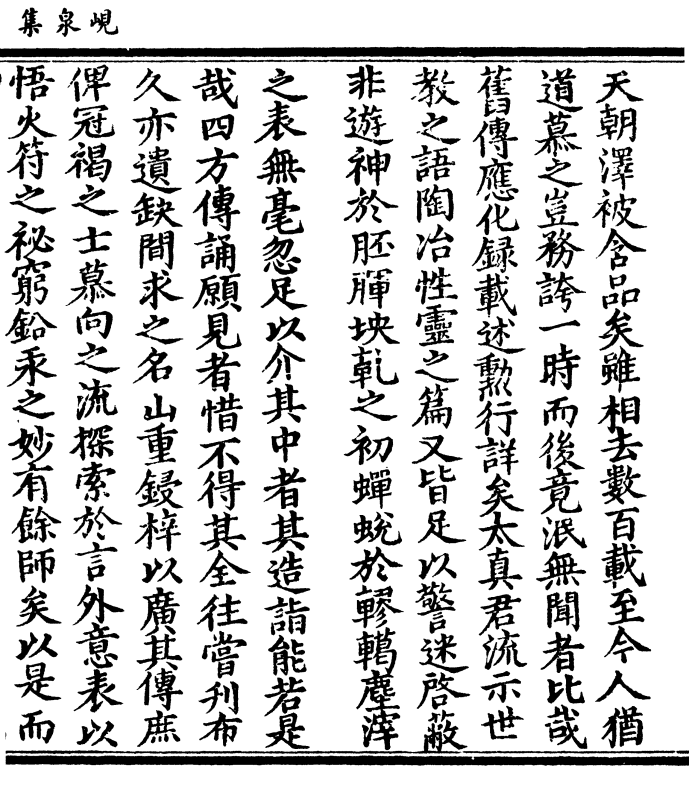 峴泉集
天朝澤被含品矣雖相去數百載至今人猶
道慕之豈務誇一時而後竟泯無聞者比哉
舊傳應化録載述勲行詳矣太真君流示世
教之語陶冶性靈之篇又皆足以警迷啓蔽
非遊神於胚腪坱亁之初蟬蛻於轇轕塵滓
之表無毫忽足以介其中者其造詣能若是
哉四方傳誦願見者惜不得其全往嘗刋布
久亦遺缺間求之名山重鋟梓以廣其傳庶
俾冠褐之士慕向之流探索於言外意表以
悟火符之祕窮鉛汞之妙有餘師矣以是而